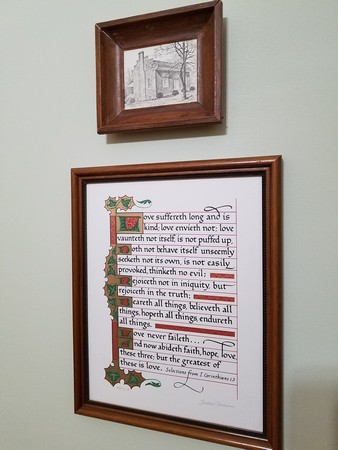 Love suffereth long and is
kind; love envieth not; love
vaunteth not itself, is not puffed up,
Doth not behave itself unseemly
seeketh not its own, is not easily
provoked, thinketh no evil;
Rejoiceth not in iniquity, but
rejoiceth in the truth;
Beareth all things, believeth all
things, hopeth all things, endureth
all things.
Love never faileth...
And now abideth faith, hope, love,
these three; but the greatest of
these is love. Selections from I Corinthians 13